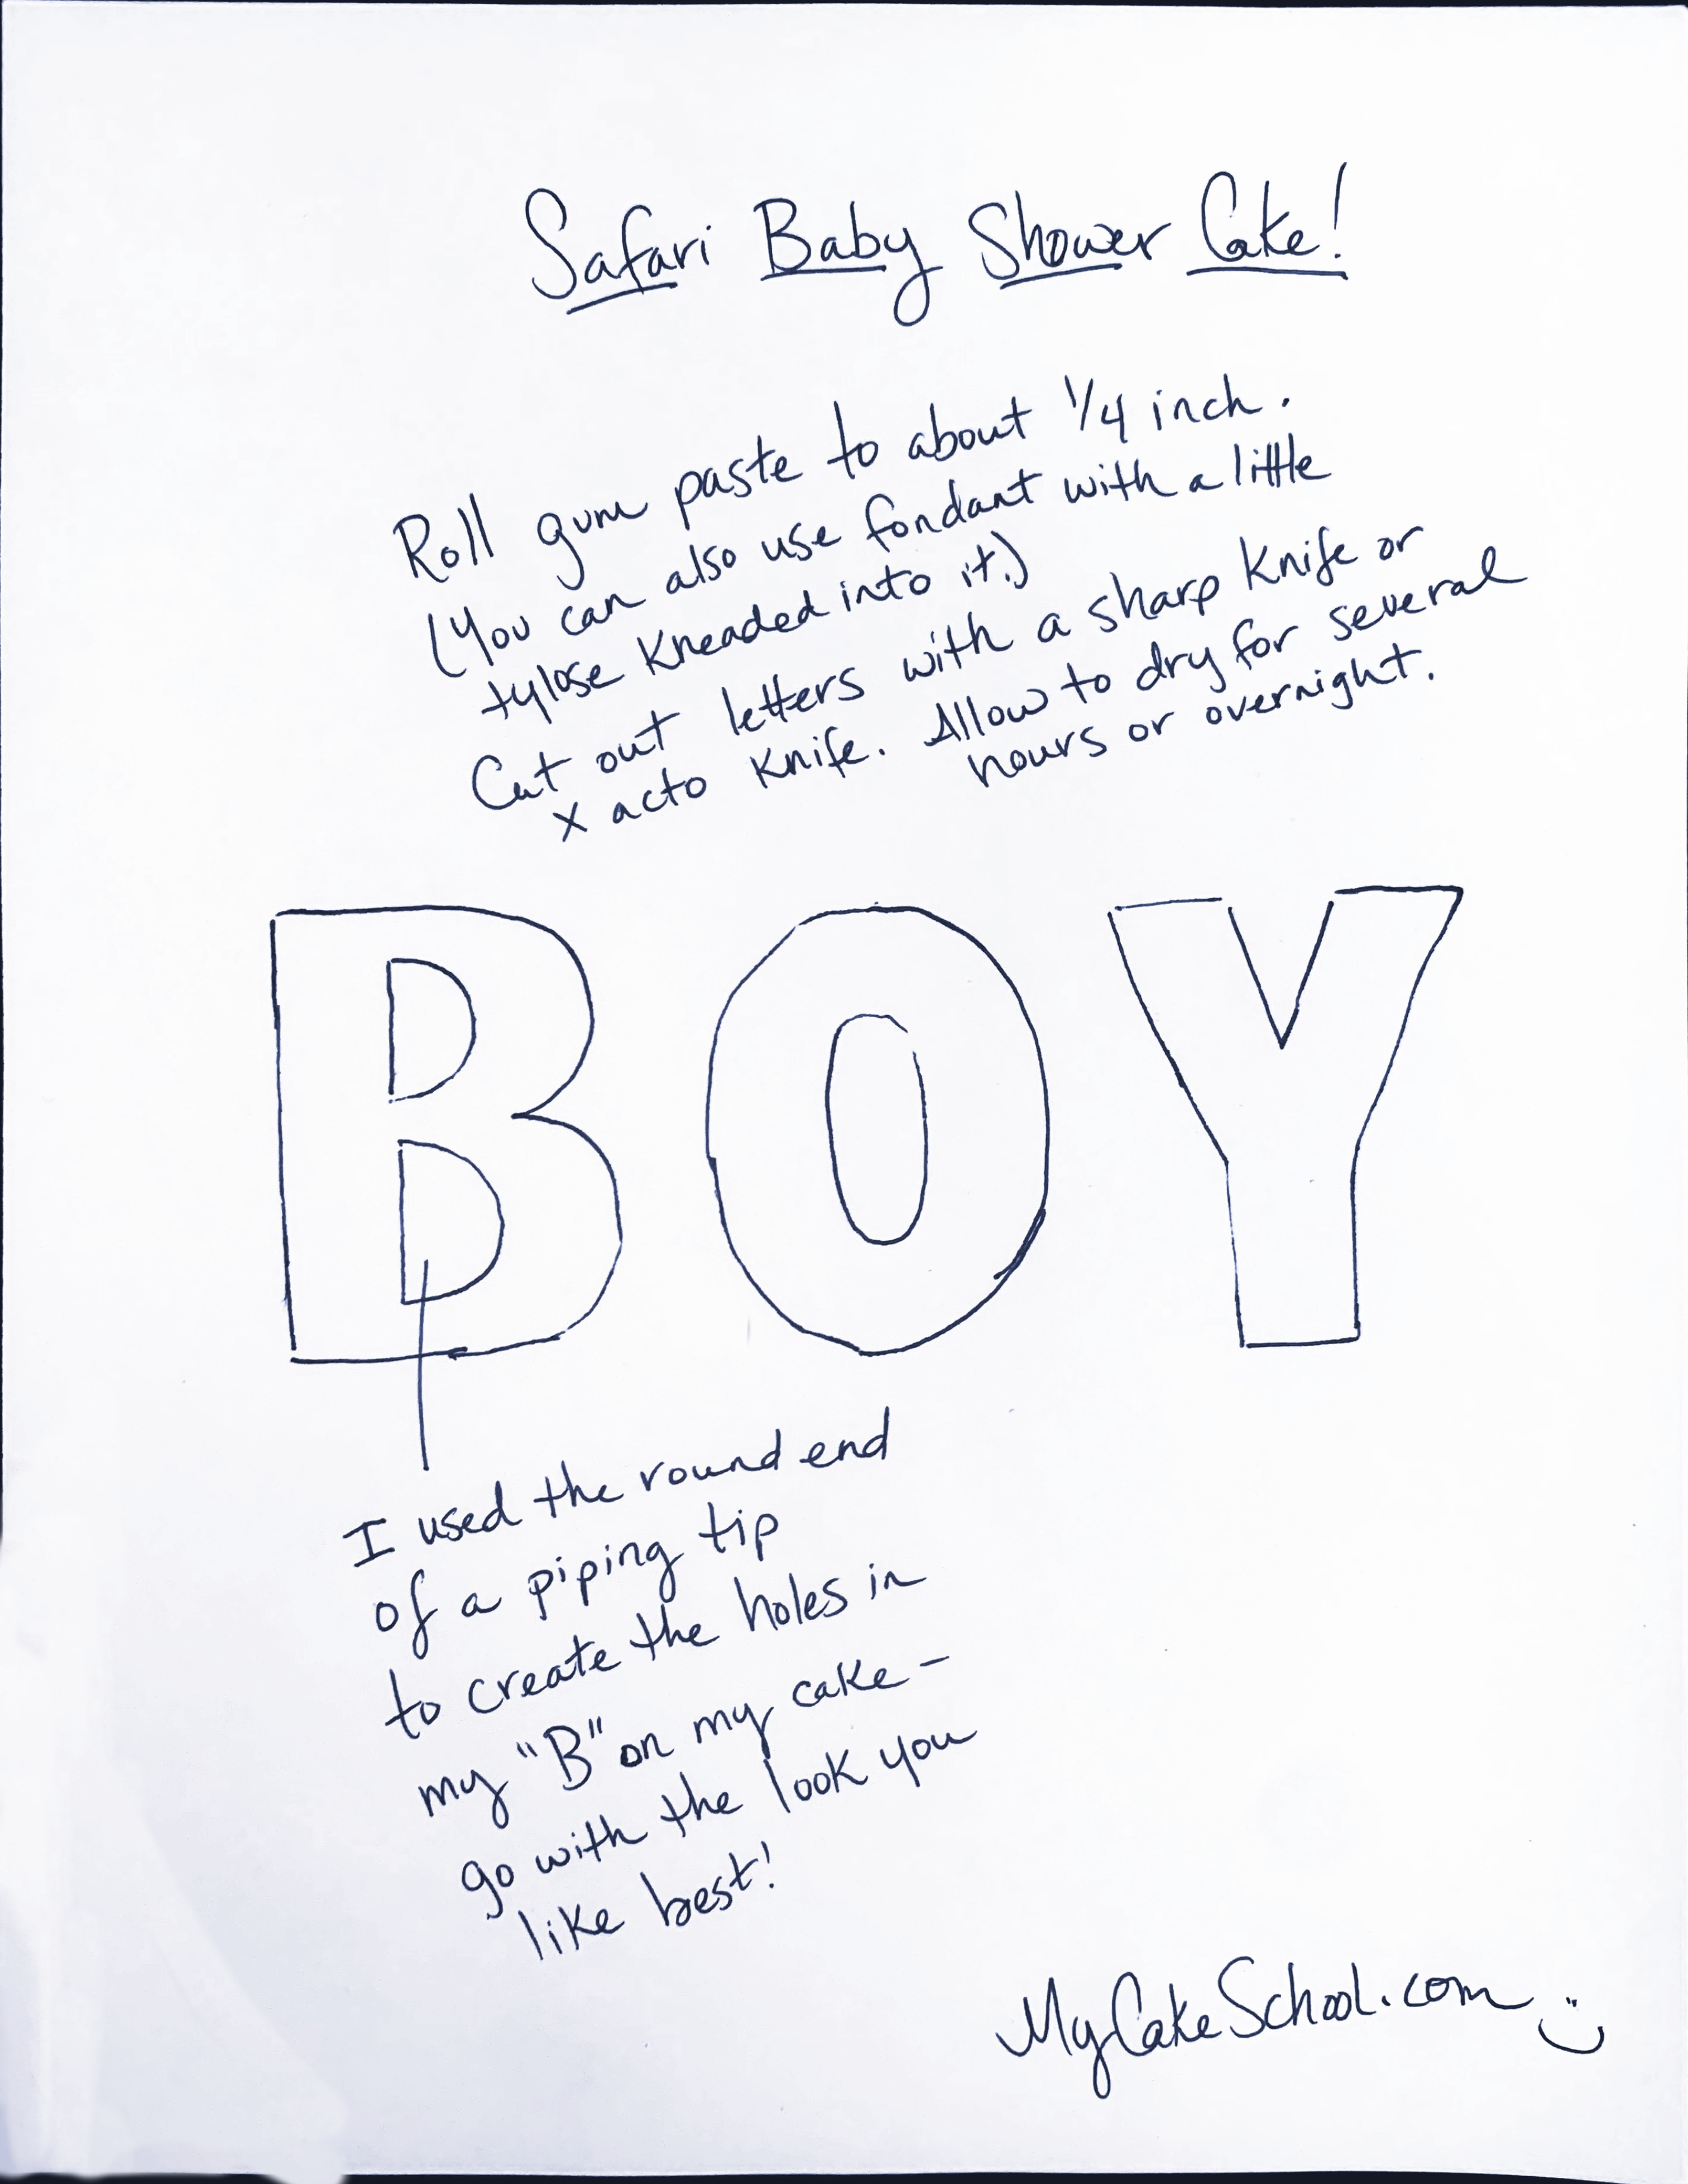 Safari Baby Shower Cake!
Roll gum paste to about 1/4 inch.
(You can also use fondant with a little
tylose kneaded into it.)
Cut out letters with a sharp knife or
x acto knife. Allow to dry for several
hours or overnight.
BOY
I used the round end
of a piping tip
to create the holes in
my "B" on my cake -
go with the look you
like best!
MyCakeSchool.com